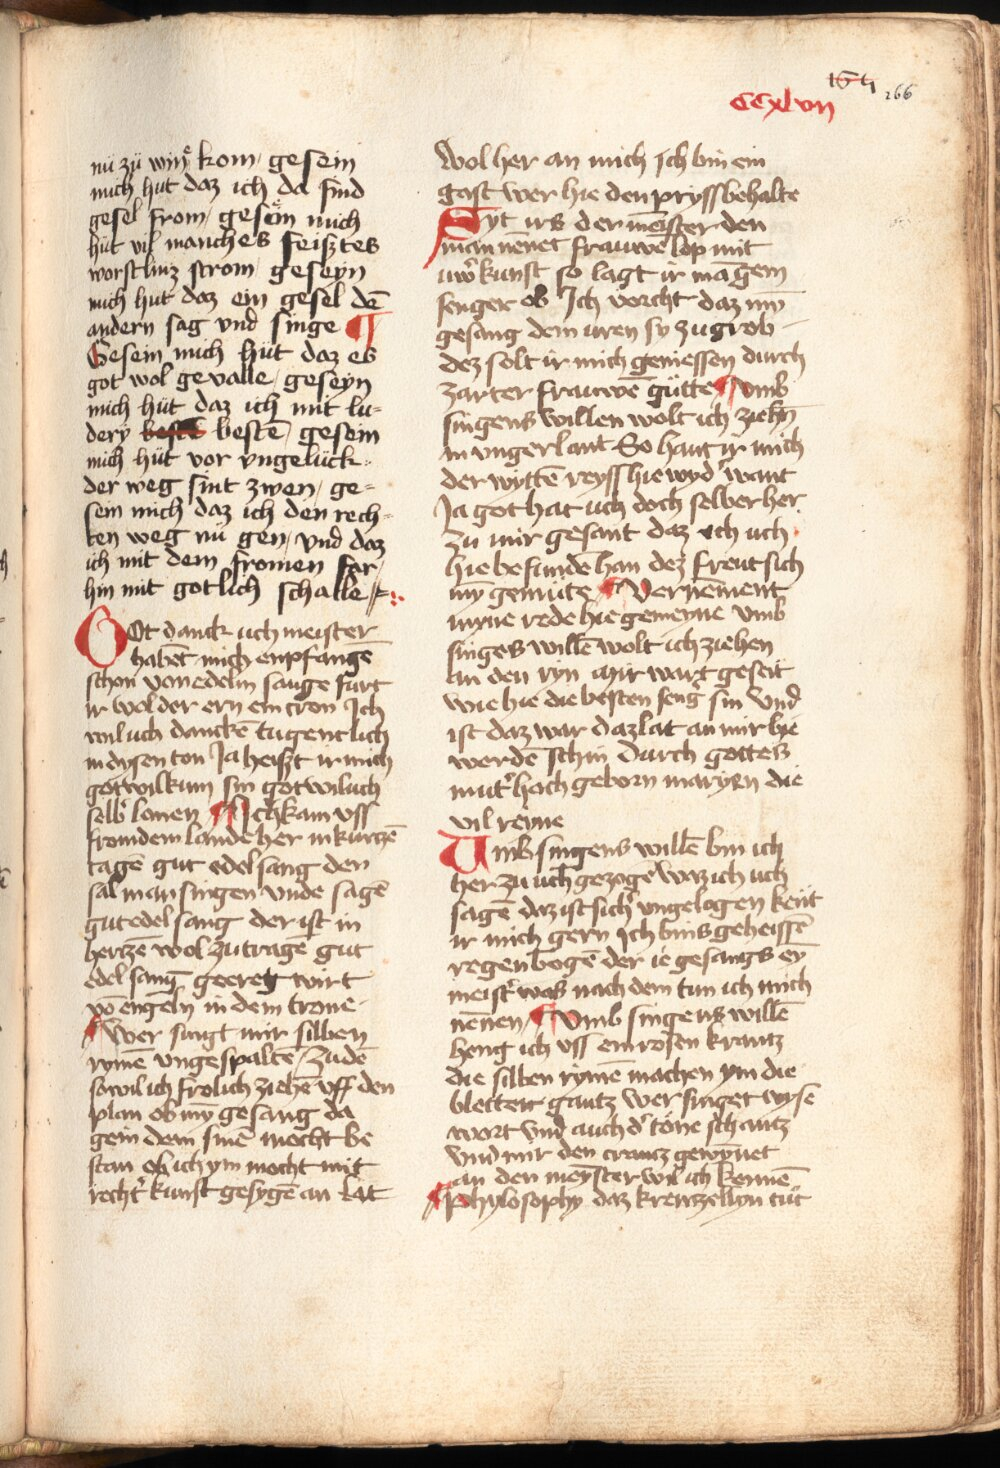 164
266
CCxlvii
nü zü winͤ kom / gesein
mich hüt daz ich da sind
gesel from / geseͤin mich
hüt vil manches feisztes
worstlinz strom / geseyn
mich hut daz ein gesel dē
andern sag vnd singe ¶
Gesein mich hüt daz es
got wol gevalle / geseyn
mich hüt daz ich mit lu-
dery beste bestē / gesein
mich hüt vor vngelück-
der weg sint zwen / ge-
sein mich daz ich den rech-
ten weg nü gen / vnd daz
ich mit dem fromen far /
hin mit gotlich schalle
GOt danck uch meister
habēt mich enpfangē
schon von edelm sange furt
ir wol der ern ein cron Jch
wil uch danckē tugentlich
in dysen ton Ja heiszt ir mich
gotwilkum sin got wil uch
selb' lonen ¶ Jch kam vss
fromdem lande her in kurczē
tagē gut edel sang den
sal man singen vnde sagē
gut edel sang der ist in
herczē wol zu tragē gut
edel sang geeret wirt
vō engeln in dem trone
¶ Wer singt mir silben
rymē vngespaltē / zu dē
so wil ich frolich ziehē vff den
plan ob my̅ gesang da
gein dem sinē mocht be
stan ob ich ym mocht mit
recht' kunst gesygē an lat
Wol her an mich Jch bin ein
gast wer hie den pryss behalte
Syt irs der meister den
man nēnet frauwē lop mit
uw' kunst so lagt ir man̄gem
senger ob Jch vorcht daz my̅
gesang dem uren sy zu grob
dez solt ir mich geniessen durch
zarter frauwē gütte ¶ Vmb
singens willen wolt ich ziehn̄
in vngerlant So hant ir mich
der wyttē reyss hie wyd' want
Ja got hat uch doch selber her
zu mir gesant daz ich uch
hie befundē han dez freut sich
my̅ gemüte ¶ Vernēment
myne rede hie gemeyne vmb
singes willē wolt ich ziehen
an den ryn Mir wart geseit
wie hie die besten seng' sin Vnd
ist daz war daz lat an mir hie
werdē schin durch gottes
mut' hoch geborn maryen die
vil reyne
Umb singens willē bin ich
her zu uch gezogē waz ich uch
sagē daz ist sich' vngelogen kent
ir mich gern Jch bins geheissē
regenbogē der ie gesangs ey
meist' was nach dem tun ich mich
nēnen / ¶ Vmb singens willē
heng ich vss ein rosen krantz
die silben rymē machen ym die
bletter gantz wer singet wyse
wort vnd auch d' töne schantz
vnd mir den crancz gewynet
an den meyster wil ich kennē
¶ Phylosophy daz krenczellyn tüt